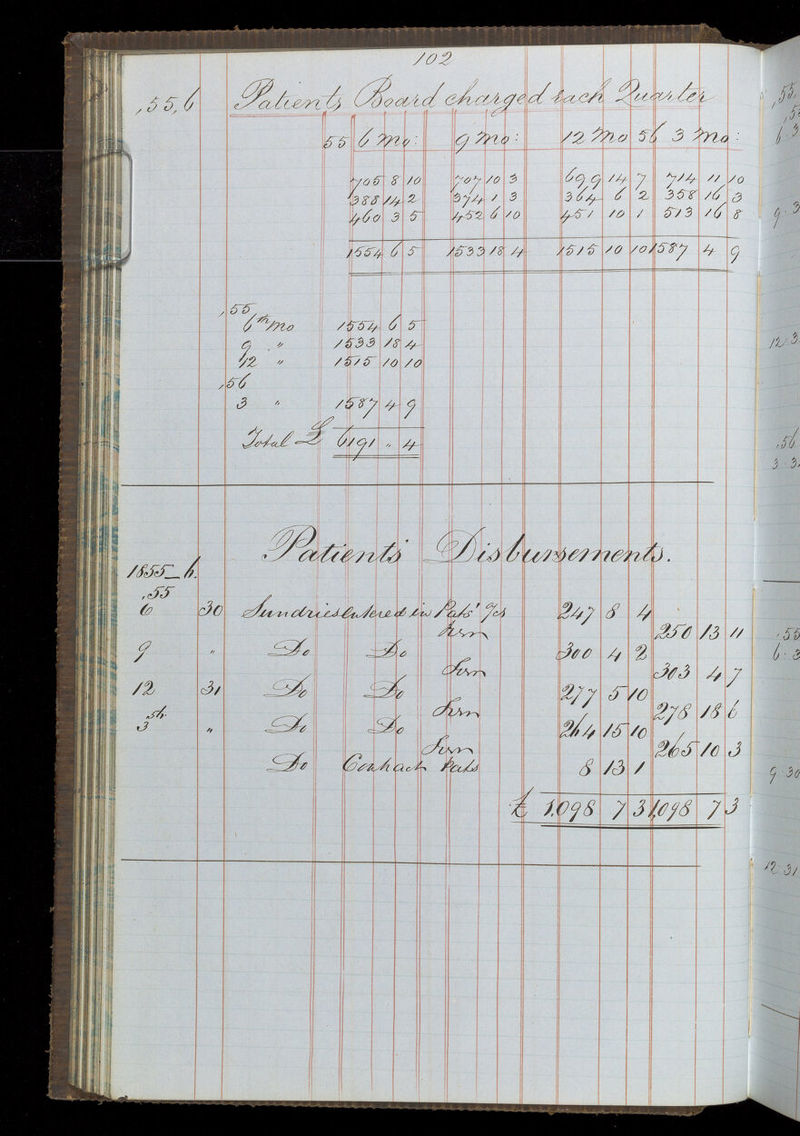 102
,55,6 Patients Board charged each Quarter
55 6 mo: 9 mo: 12 mo 56 3 mo:
705 8 10 707 10 3 699 14 7 714 11 10
388 14 2 374 1 3 364 6 2 358 16 3
460 3 5 452 6 10 451 10 1 513 16 8
1554 6 5 1533 18 4 1515 10 10 1587 4 9
,55
6th mo 1554 6 5
9 " 1533 18 4
12 " 1515 10 10
,56
3 " 1587 4 9
Total £ 6191 " 4
Patients Disbursements.
1855_6.
,55
6 30 Sundries entered in Pats'
250 13 11
247 8 4
9 " Do Do 300 4 2
303 4 7
12 31 Do Do 277 5 10
278 18 6
3 " Do Do 264 15 10
265 10 3
Do Contract Pats 8 13 1
£ 1,098 7 3 1,098 7 3